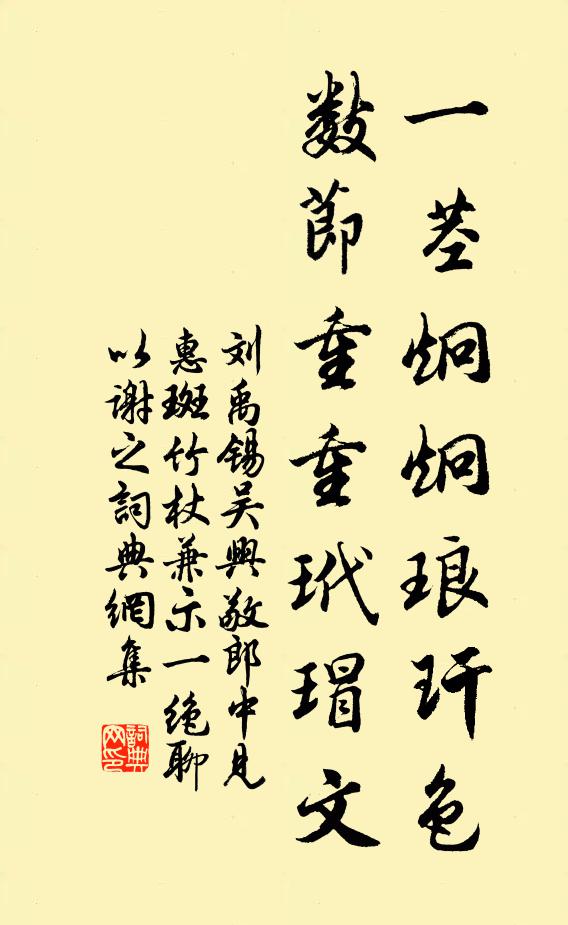 一茎炯炯琅玕色
数節重重玳瑁文
刘禹锡吴興敬郎中見
惠斑竹杖兼示一絶聊
以谢之詞典網集
詞典
网印